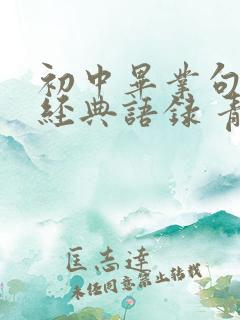 初中畢業句
經典語錄 青
匡志達
未经同意禁止转载